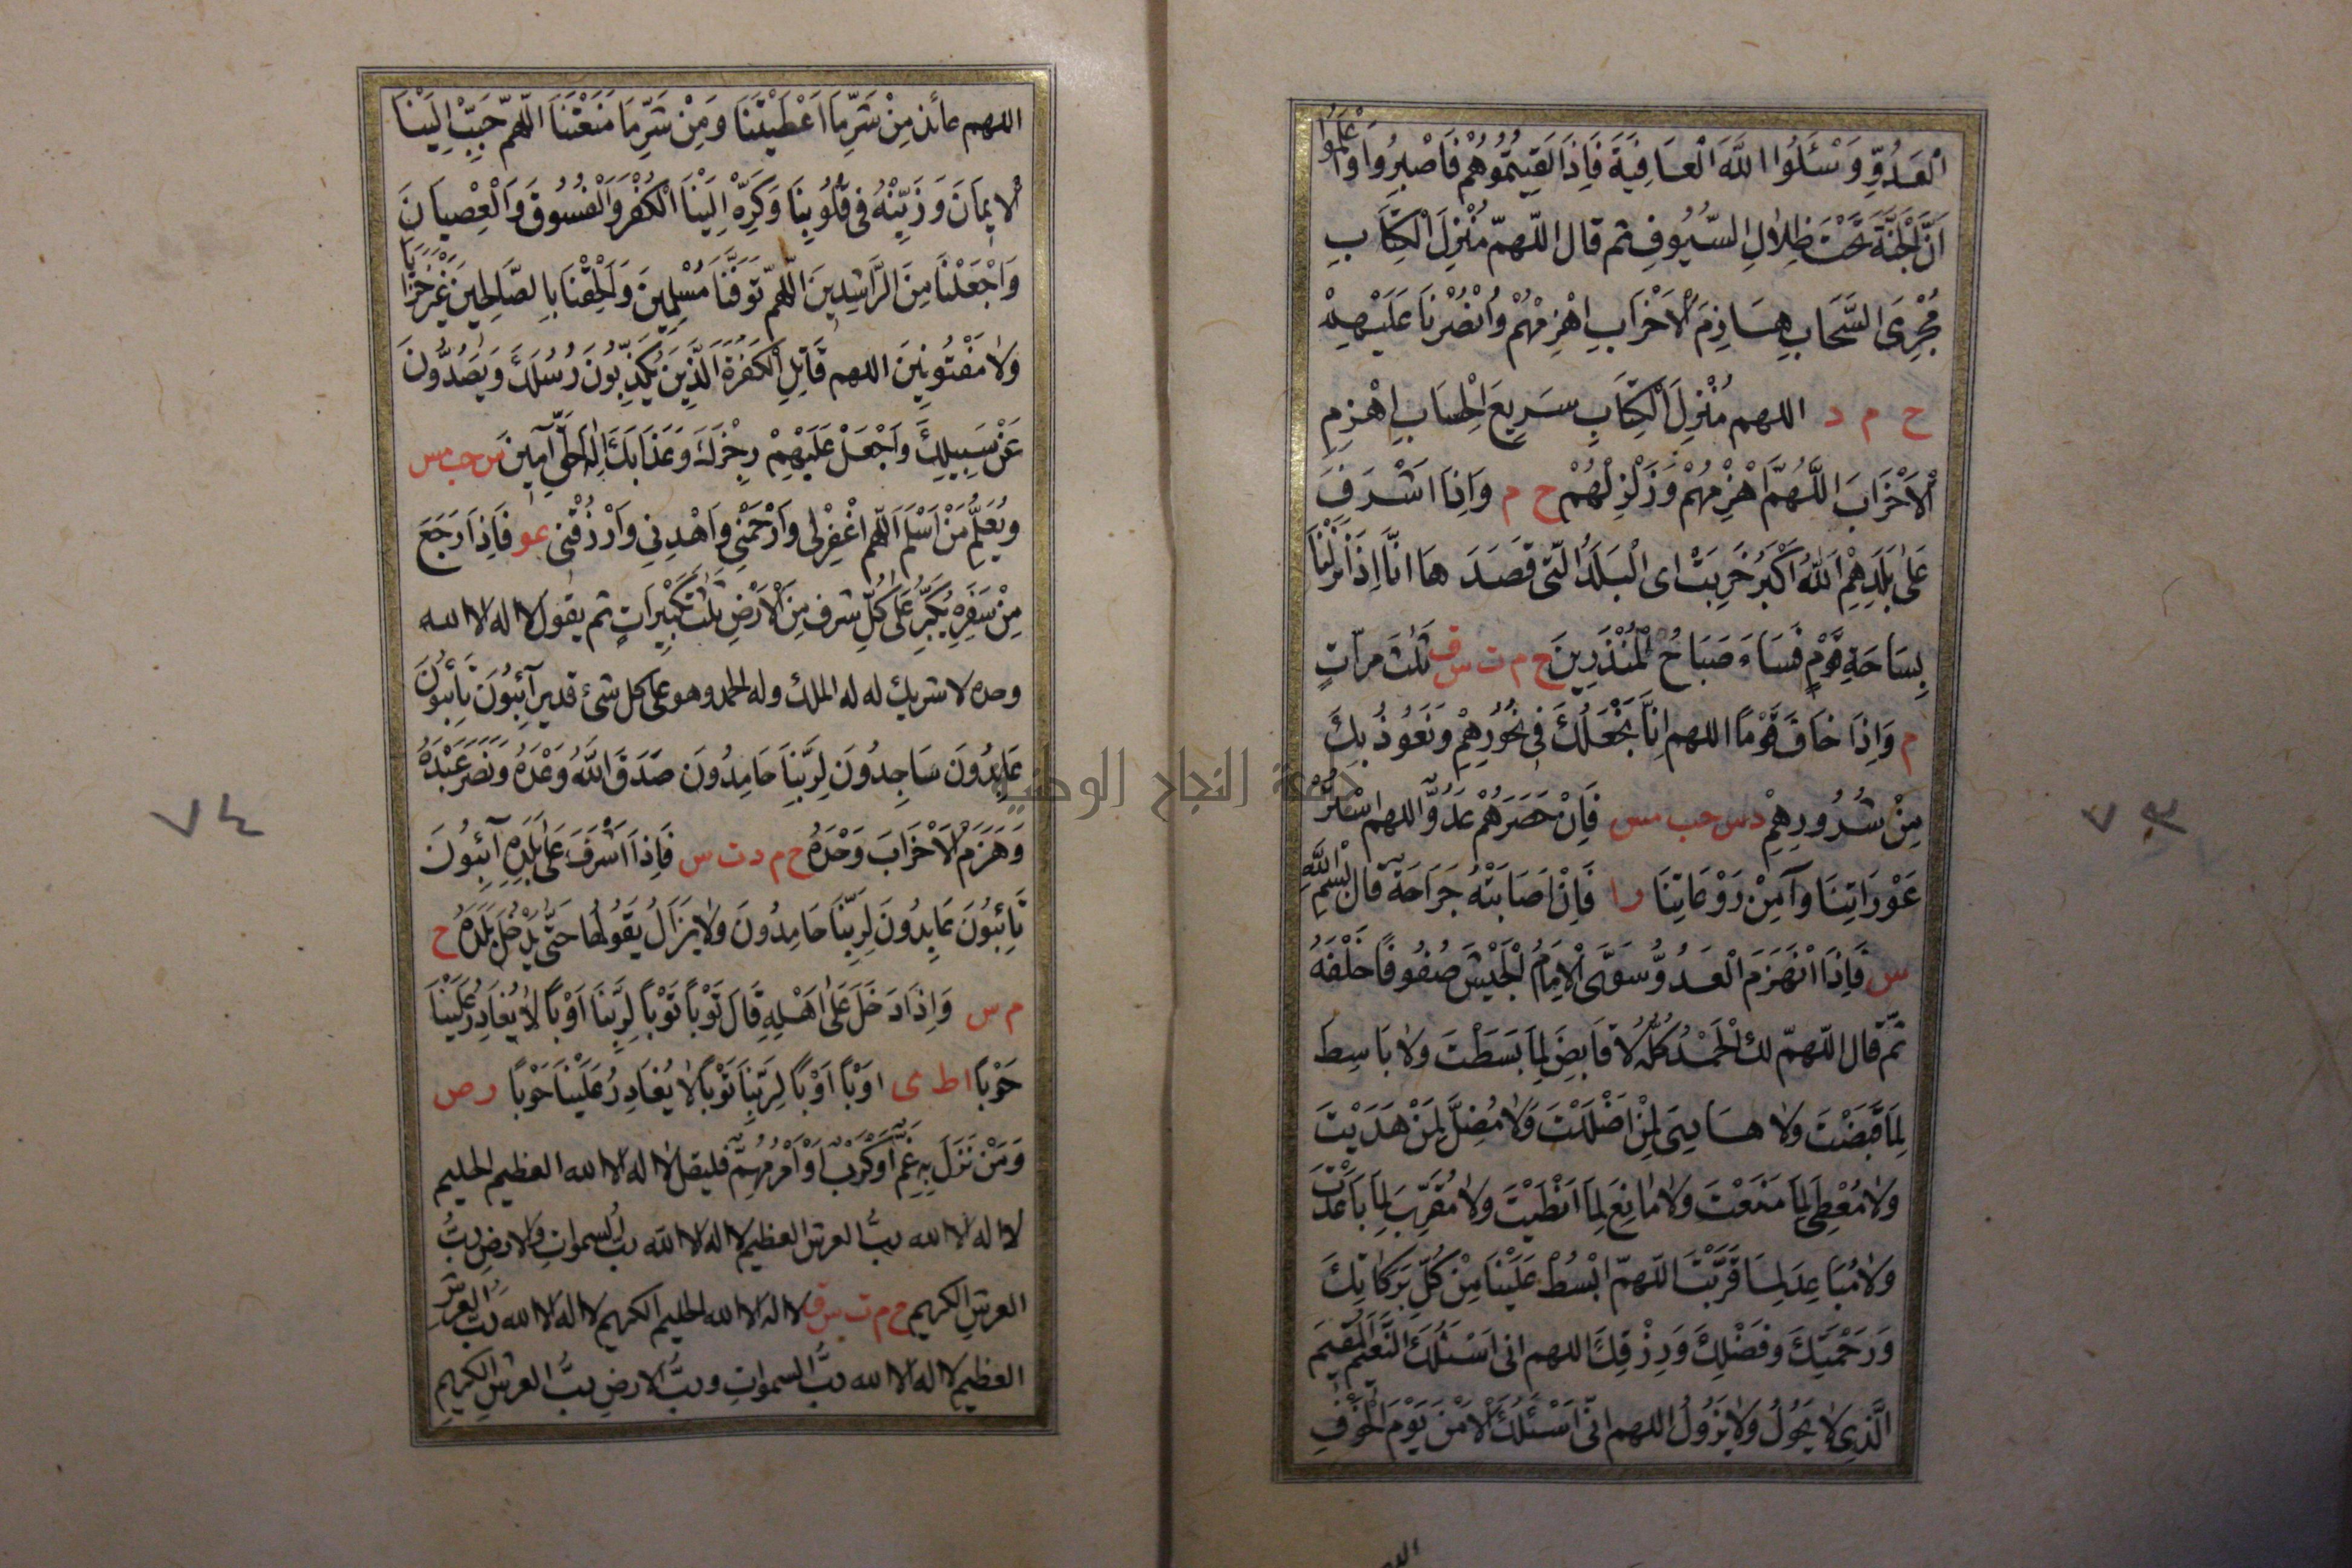 الْعَدُوِّ وَسْئَلُوا اللَّهَ الْعَافِيَةَ فَاِذَا لَقِيتُمُوهُمْ فَاصْبِرُوا وَاعْلَمُوا
اَنَّ الْجَنَّةَ تَحْتَ ظِلَالِ السُّيُوفِ ثم قال اللّهمّ مُنْزِلَ الْكِتَابِ
مُجْرِىَ السَّحَابِ هَازِمَ الْاَحْزَابِ اهْزِمْهُمْ وَانْصُرْنَا عَلَيْهِمْ
خ م د اللهم مُنْزِلَ الْكِتَابِ سَرِيعَ الْحِسَابِ اهْزِمِ
الْاَحْزَابَ اللَّهُمَّ اهْزِمْهُمْ وَزَلْزِلْهُمْ خ م وَاِذَا اشْرَفَ
عَلَى بَلَدِهِمْ اللّٰهُ اَكْبَرُ خَرِبَتْ اى الْبَلَدُ الَّتى قَصَدَ هَا انَّا اِذَا نَزَلْنَا
بِسَاحَةِ قَوْمٍ فَسَاءَ صَبَاحُ الْمُنْذَرِينَ خ م ت س ق ثَلٰثَ مَرّاتٍ
م وَاِذَا خَافَ قَوْمًا اللهم اِنَّا نَجْعَلُكَ فِى نُحُورِهِمْ وَنَعُوذُ بِكَ
مِنْ شُرُورِهِمْ د س حب مس فَاِنْ حَصَرَهُمْ عَدُوٌّ اللهم اسْتُرْ
عَوْرَاتِنَا وَآمِنْ رَوْعَاتِنَا ر ا فَاِنْ اَصَابَتْهُ جَرَاحَةٌ قَالَ بِسْمِ اللّٰهِ
س فَاِذَا انْهَزَمَ الْعَدُوُّ سَوَّى الْاِمَامُ الْجَيْشَ صُفُوفًا خَلْفَهُ
ثمَّ قال اللّهمّ لك الْحَمْدُ كُلُّهُ لَا قَابِضَ لِمَا بَسَطْتَ وَلا بَاسِطَ
لِمَا قَبَضْتَ وَلَا هَادِىَ لِمَنْ اَضْلَلْتَ وَلَا مُضِلَّ لِمَنْ هَدَيْتَ
وَلَا مُعْطِىَ لِمَا مَنَعْتَ وَلَا مَانِعَ لِمَا اَنْطَيْتَ وَلَا مُقَرِّبَ لِمَا بَاعَدْتَ
وَلَا مُبَاعِدَ لِمَا قَرَّبْتَ اللّهمّ ابْسُطْ عَلَيْنَا مِنْ كُلِّ بَرَكَاتِكَ
وَرَحْمَتِكَ وَفَضْلِكَ وَرِزْقِكَ اللهم انى اَسْئَلُكَ النَّعِيمَ الْمُقِيمَ
الَّذِى لَا يَحُولُ وَلَا يَزُولُ اللهم انّى اَسْئَلُكَ الْاَمْنَ يَوْمَ الْخَوْفِ
٧٣
اللهم عائذ مِنْ شَرِّ مَا اَعْطَيْتَنَا وَمِنْ شَرِّ مَا مَنَعْتَنَا اللّهمّ حَبِّبْ اِلَيْنَا
الْايمَانَ وَزَيِّنْهُ فى قُلُوبِنَا وَكَرِّهْ اِلَيْنَا الْكُفْرَ وَالْفُسُوقَ وَالْعِصْيَانَ
وَاجْعَلْنَا مِنَ الرَّاشِدِينَ اللّهمّ تَوَفَّنَا مُسْلِمِينَ وَاَلْحِقْنَا بِالصَّالِحِينَ غَيْرَ خَزَايَا
وَلَا مَفْتُونِينَ اللهم قَاتِلِ الْكَفَرَةَ الَّذِينَ يُكَذِّبُونَ رُسُلَكَ وَيَصُدُّونَ
عَنْ سَبِيلِكَ وَاجْعَلْ عَلَيْهِمْ رِجْزَكَ وَعَذَابَكَ اِلٰهَ الْحَقِّ آمِينَ س حب مس
وَيُعَلِّمُ مَنْ اَسْلَمَ اَللّهم اغْفِرْلى وَارْحَمْنِى وَاهْدِنِى وَارْزُقْنِى عو فَاِذَا رَجَعَ
مِنْ سَفَرِهِ يُكَبِّرُ عَلَى كُلِّ شرف مِنَ الْاَرْضِ ثَلٰثَ تَكْبِيرَاتٍ ثم يقول لا اله الا الله
وحده لا شريك له له الملك وله الحمد وهو على كل شئ قدير آئِبُونَ تَائِبُونَ
عَابِدُونَ سَاجِدُونَ لِرَبِّنَا حَامِدُونَ صَدَقَ اللَّهُ وَعْدَهُ وَنَصَرَ عَبْدَهُ
وَهَزَمَ الْاَحْزَابَ وَحْدَهُ خ م د ت س فَاِذَا اَشْرَفَ عَلَى بَلَدِهِ آئِبُونَ
تَائِبُونَ عَابِدُونَ لِرَبِّنَا حَامِدُونَ وَلَا يَزَالُ يَقُولُهَا حَتَّى يَدْخُلَ بَلَدَهُ خ
م س وَاِذَا دَخَلَ عَلَى اَهْلِهِ قَالَ تَوْبًا تَوْبًا لِرَبِّنَا اَوْبًا لَا يُغَادِرُ عَلَيْنَا
حَوْبًا ا ط ى اَوْبًا اَوْبًا لِرَبِّنَا تَوْبًا لَا يُغَادِرُ عَلَيْنَا حَوْبًا ر ص
وَمَنْ نَزَلَ بِهِ غَمٌّ اَوْ كَرْبٌ اَوْ اَمْرٌ مُهِمٌّ فليقل لا اله الا الله العظيم الحليم
لا اله الا الله ربُّ العرش العظيم لا اله الا الله ربُّ السموات والارض ربُّ
العرشِ الكريم خ م ت س ق لا اله الا الله الحليم الكريم لا اله الا الله ربُّ العرش
العظيم لا اله الا الله ربُّ السمواتِ وربُّ الارضِ ربُّ العرشِ الكريمِ
٧٤
جامعة النجاح الوطنية